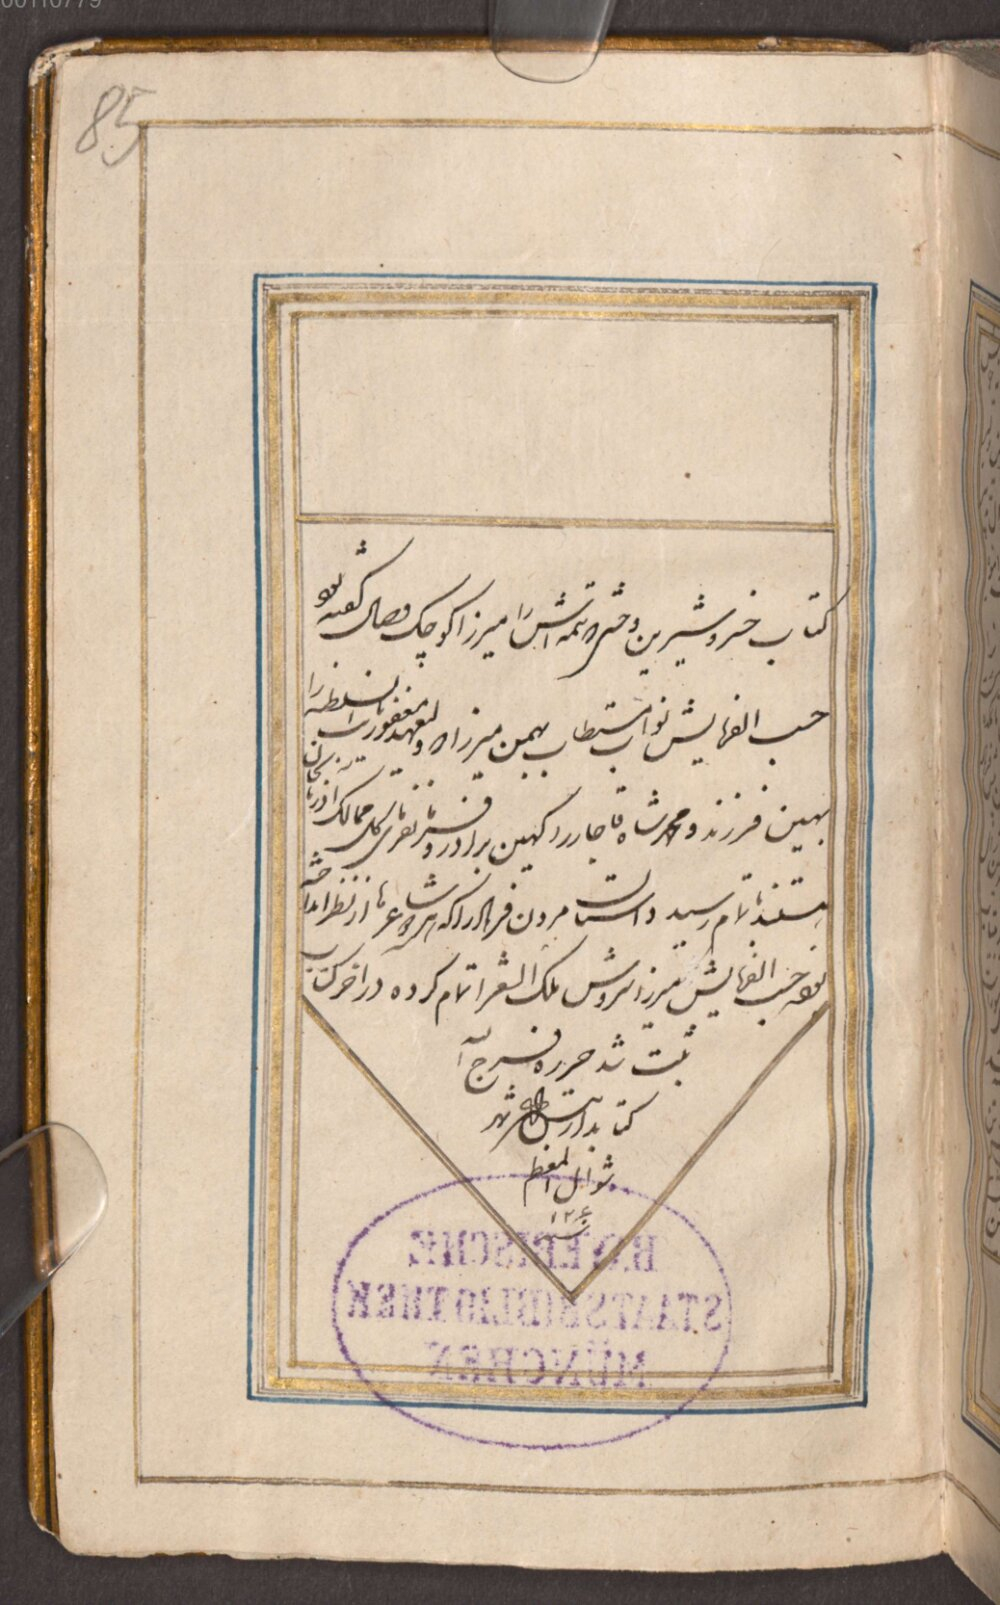 85
کتاب خسرو شیرین وحشی که تتمه اش را میرزا کوچک وصال گفته بود
حسب الفرمایش نواب مستطاب بهمن میرزا که ولیعهد مغفور نایب السلطنه را
بهین فرزند و محمد شاه قاجار را کهین برادر و فرمانفرمای کل ممالک آذربایجان
هستند باتمام رسید داستان مردن فرهاد را که هر دو شاعر از نظر انداخته
بودند حسب الفرمایش میرزا سروش ملک الشعرا تمام کرده در آخر کتاب
ثبت شد حرره فرج الله
کتابدار فی شهر
شوال المعظم
سنه ۱۲۶
BAYERISCHE
STAATSBIBLIOTHEK
MÜNCHEN